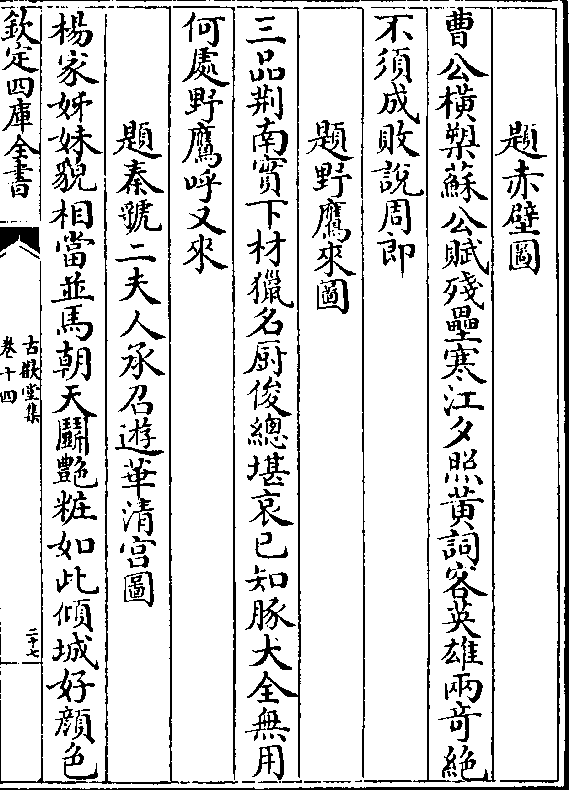 題赤壁圖
曹公橫槊蘇公賦殘壘寒江夕照黄詞客英雄兩竒絶
不須成敗說周郎
題野鷹來圖
三品荆南實下材獵名厨俊總堪哀已知豚犬全無用
何處野鷹呼又來
題秦虢二夫人承召遊華清宫圖
楊家姊妹貌相當並馬朝天鬭艶粧如此傾城好顔色
欽定四庫全書
古歡堂集
卷十四
二十七